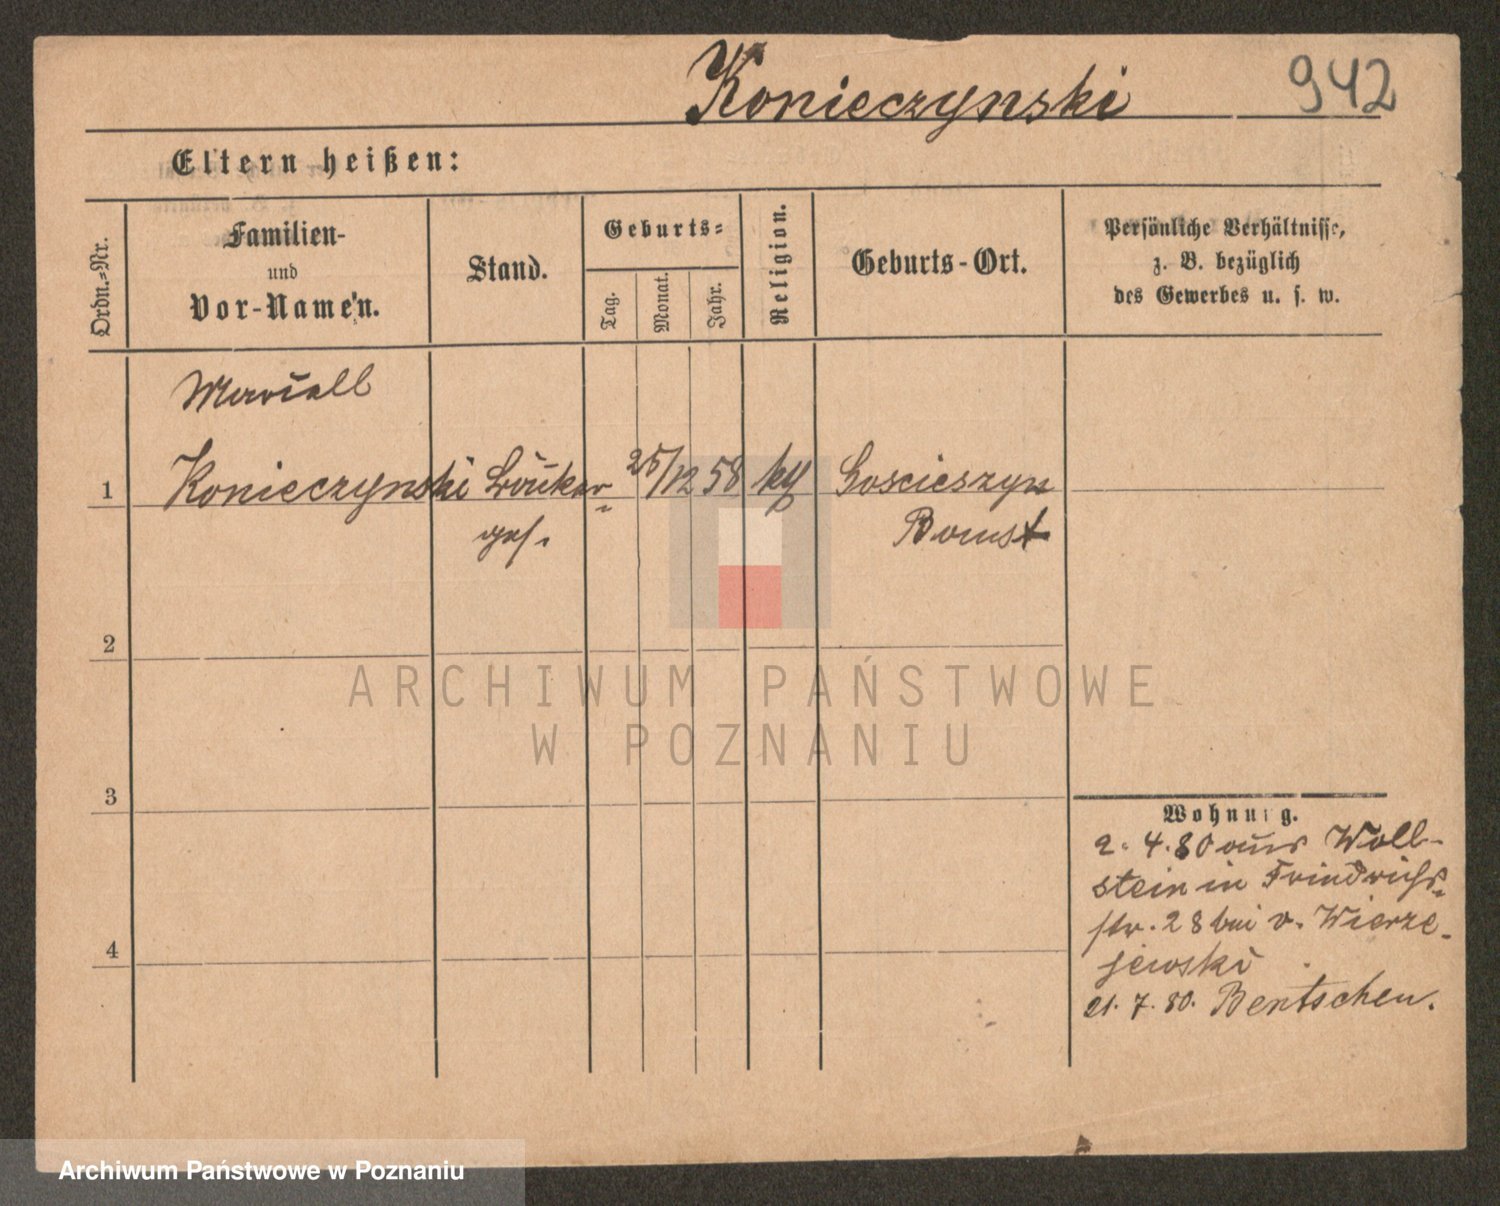 Konieczynski 942
Eltern heißen:
Ordn.-Nr.
Familien-
und
Vor-Namen.
Stand.
Geburts-
Tag.
Monat.
Jahr.
Religion.
Geburts-Ort.
Persönliche Verhältnisse,
z. B. bezüglich
des Gewerbes u. s. w.
1
Konieczynski 25/12 58 Goscieszyn
ges. Bomst
2
ARCHIWUM PAŃSTWOWE
W POZNANIU
3
4
Wohnung.
2. 4. 80 aus Woll-
stein in Friedrichs-
str. 28 bei v. Wierze-
jewski
21. 7. 80. Bentschen.
Archiwum Państwowe w Poznaniu